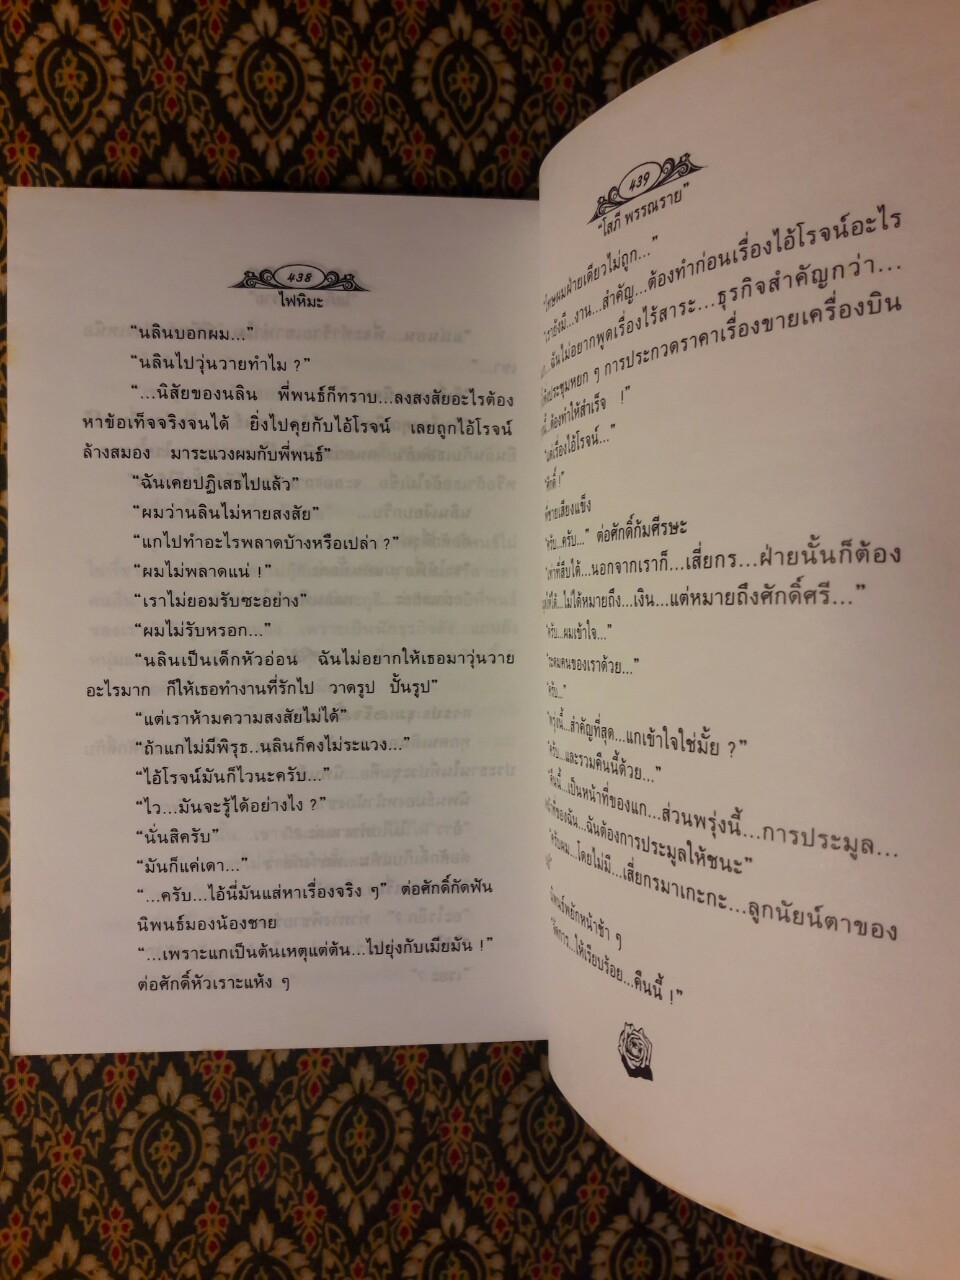 438
ไฟหิมะ
“นลินบอกผม...”
“นลินไปวุ่นวายทำไม ?”
“...นิสัยของนลิน พี่พนธ์ก็ทราบ...ลงสงสัยอะไรต้อง
หาข้อเท็จจริงจนได้ ยิ่งไปคุยกับไอ้โรจน์ เลยถูกไอ้โรจน์
ล้างสมอง มาระแวงผมกับพี่พนธ์”
“ฉันเคยปฏิเสธไปแล้ว”
“ผมว่านลินไม่หายสงสัย”
“แกไปทำอะไรพลาดบ้างหรือเปล่า ?”
“ผมไม่พลาดแน่ !”
“เราไม่ยอมรับซะอย่าง”
“ผมไม่รับหรอก...”
“นลินเป็นเด็กหัวอ่อน ฉันไม่อยากให้เธอมาวุ่นวาย
อะไรมาก ก็ให้เธอทำงานที่รักไป วาดรูป ปั้นรูป”
“แต่เราห้ามความสงสัยไม่ได้”
“ถ้าแกไม่มีพิรุธ..นลินก็คงไม่ระแวง...”
“ไอ้โรจน์มันก็ไวนะครับ...”
“ไว...มันจะรู้ได้อย่างไง ?”
“นั่นสิครับ”
“มันก็แค่เดา...”
“...ครับ...ไอ้นี่มันแส่หาเรื่องจริง ๆ” ต่อศักดิ์กัดฟัน
นิพนธ์มองน้องชาย
“...เพราะแกเป็นต้นเหตุแต่ต้น...ไปยุ่งกับเมียมัน !”
ต่อศักดิ์หัวเราะแห้ง ๆ
439
“โสภี พรรณราย”
โทษผมฝ่ายเดียวไม่ถูก...”
“เรายังมี...งาน...สำคัญ...ต้องทำก่อนเรื่องไอ้โรจน์อะไร
ฉันไม่อยากพูดเรื่องไร้สาระ...ธุรกิจสำคัญกว่า...
ประชุมหยก ๆ การประกวดราคาเรื่องขายเครื่องบิน
ต้องทำให้สำเร็จ !”
“แต่เรื่องไอ้โรจน์...”
“ศักดิ์ !”
พี่ชายเสียงแข็ง
“ครับ...ครับ...” ต่อศักดิ์ก้มศีรษะ
“เท่าที่สืบได้...นอกจากเราก็...เสี่ยกร...ฝ่ายนั้นก็ต้อง
ไม่ได้หมายถึง...เงิน...แต่หมายถึงศักดิ์ศรี...”
“ครับ...ผมเข้าใจ...”
“ระดมคนของเราด้วย...”
“ครับ...”
“พรุ่งนี้...สำคัญที่สุด...แกเข้าใจใช่มั้ย ?”
“ครับ...และรวมคืนนี้ด้วย...”
“คืนนี้...เป็นหน้าที่ของแก...ส่วนพรุ่งนี้...การประมูล...
ของฉัน...ฉันต้องการประมูลให้ชนะ”
“ครับผม...โดยไม่มี...เสี่ยกรมาเกะกะ...ลูกนัยน์ตาของ
นิพนธ์พยักหน้าช้า ๆ
ให้เรียบร้อย...คืนนี้ !”